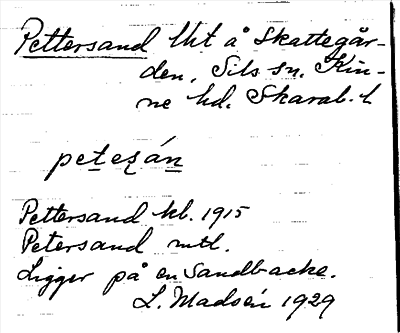 Pettersand lht å Skattegår-
den, Sils sn. Kin-
ne hd. Skarab. l
petesán
Pettersand kb. 1915
Petersand mtl.
Ligger på en Sandbacke.
L. Madsén 1929